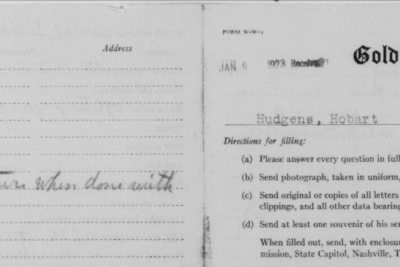 Address
when done with
FORM W-W-1
JAN 6 1923 Received
Gold
Hudgens, Hobart
Directions for filling:
(a) Please answer every question in full
(b) Send photograph, taken in uniform,
(c) Send original or copies of all letters
clippings, and all other data bearing
(d) Send at least one souvenir of his ser
When filled out, send, with enclosu
mission, State Capitol, Nashville, T